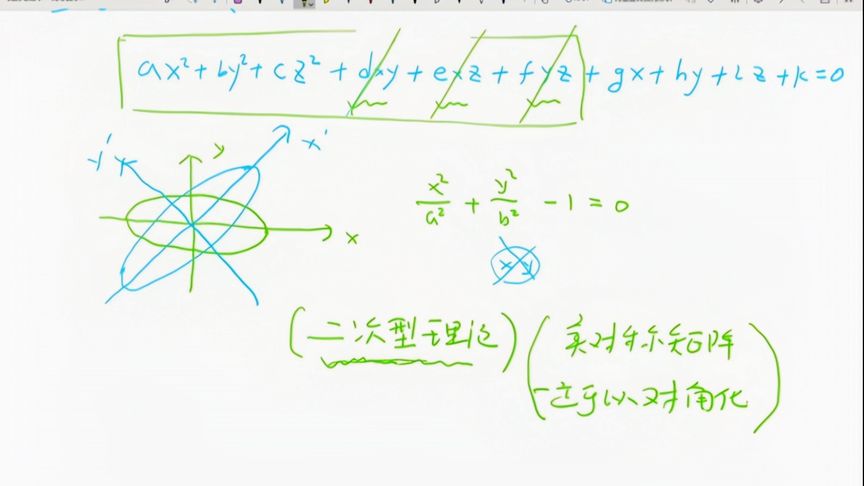 ax² + by² + cz² + dxy + exz + fyz + gx + hy + iz + k = 0
y'
x'
y
x
x²/a² + y²/b² - 1 = 0
xy
(二次型理论)
(实对称矩阵
一定可以对角化)